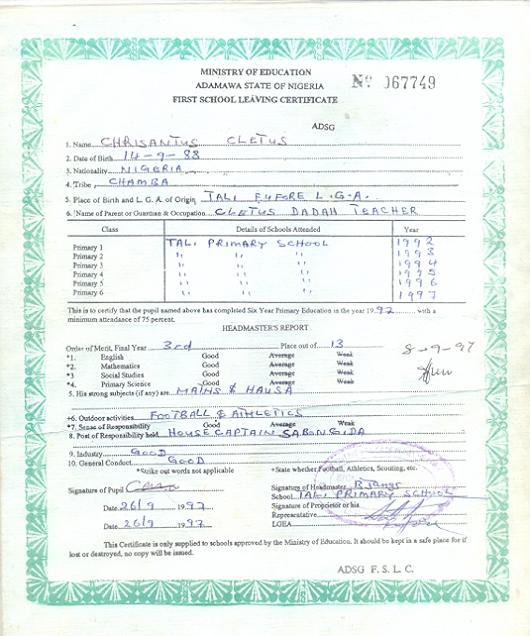 MINISTRY OF EDUCATION
ADAMAWA STATE OF NIGERIA
FIRST SCHOOL LEAVING CERTIFICATE
No 067749
ADSG
1. Name CHRISANTUS CLETUS
2. Date of Birth 14-9-83
3. Nationality NIGERIA
4. Tribe CHAMBA
5. Place of Birth and L. G. A. of Origin TALI FUFORE L.G.A.
6. Name of Parent or Guardian & Occupation CLETUS DADAH TEACHER
Class Details of Schools Attended Year
Primary 1 TALI PRIMARY SCHOOL 1992
Primary 2 " " " 1993
Primary 3 " " " 1994
Primary 4 " " " 1995
Primary 5 " " " 1996
Primary 6 " " " 1997
This is to certify that the pupil named above has completed Six Year Primary Education in the year 1997 with a
minimum attendance of 75 percent.
HEADMASTER'S REPORT
Order of Merit, Final Year 3rd Place out of 13
8-9-97
*1. English Good Average Weak
*2. Mathematics Good Average Weak
*3 Social Studies Good Average Weak
*4. Primary Science Good Average Weak
5. His strong subjects (if any) are MATHS & HAUSA
+6. Outdoor activities FOOTBALL & ATHLETICS
*7. Sense of Responsibility Good Average Weak
8. Post of Responsibility held HOUSE CAPTAIN SABON GIDA
9. Industry GOOD
10. General Conduct GOOD
*Strike out words not applicable +State whether Football, Athletics, Scouting, etc.
Signature of Pupil
Signature of Headmaster
School TALI PRIMARY SCHOOL
Date 26/9 1997
Signature of Proprietor or his
Representative
Date 26/9 1997
LGEA
This Certificate is only supplied to schools approved by the Ministry of Education. It should be kept in a safe place for if
lost or destroyed, no copy will be issued.
ADSG F. S. L. C.